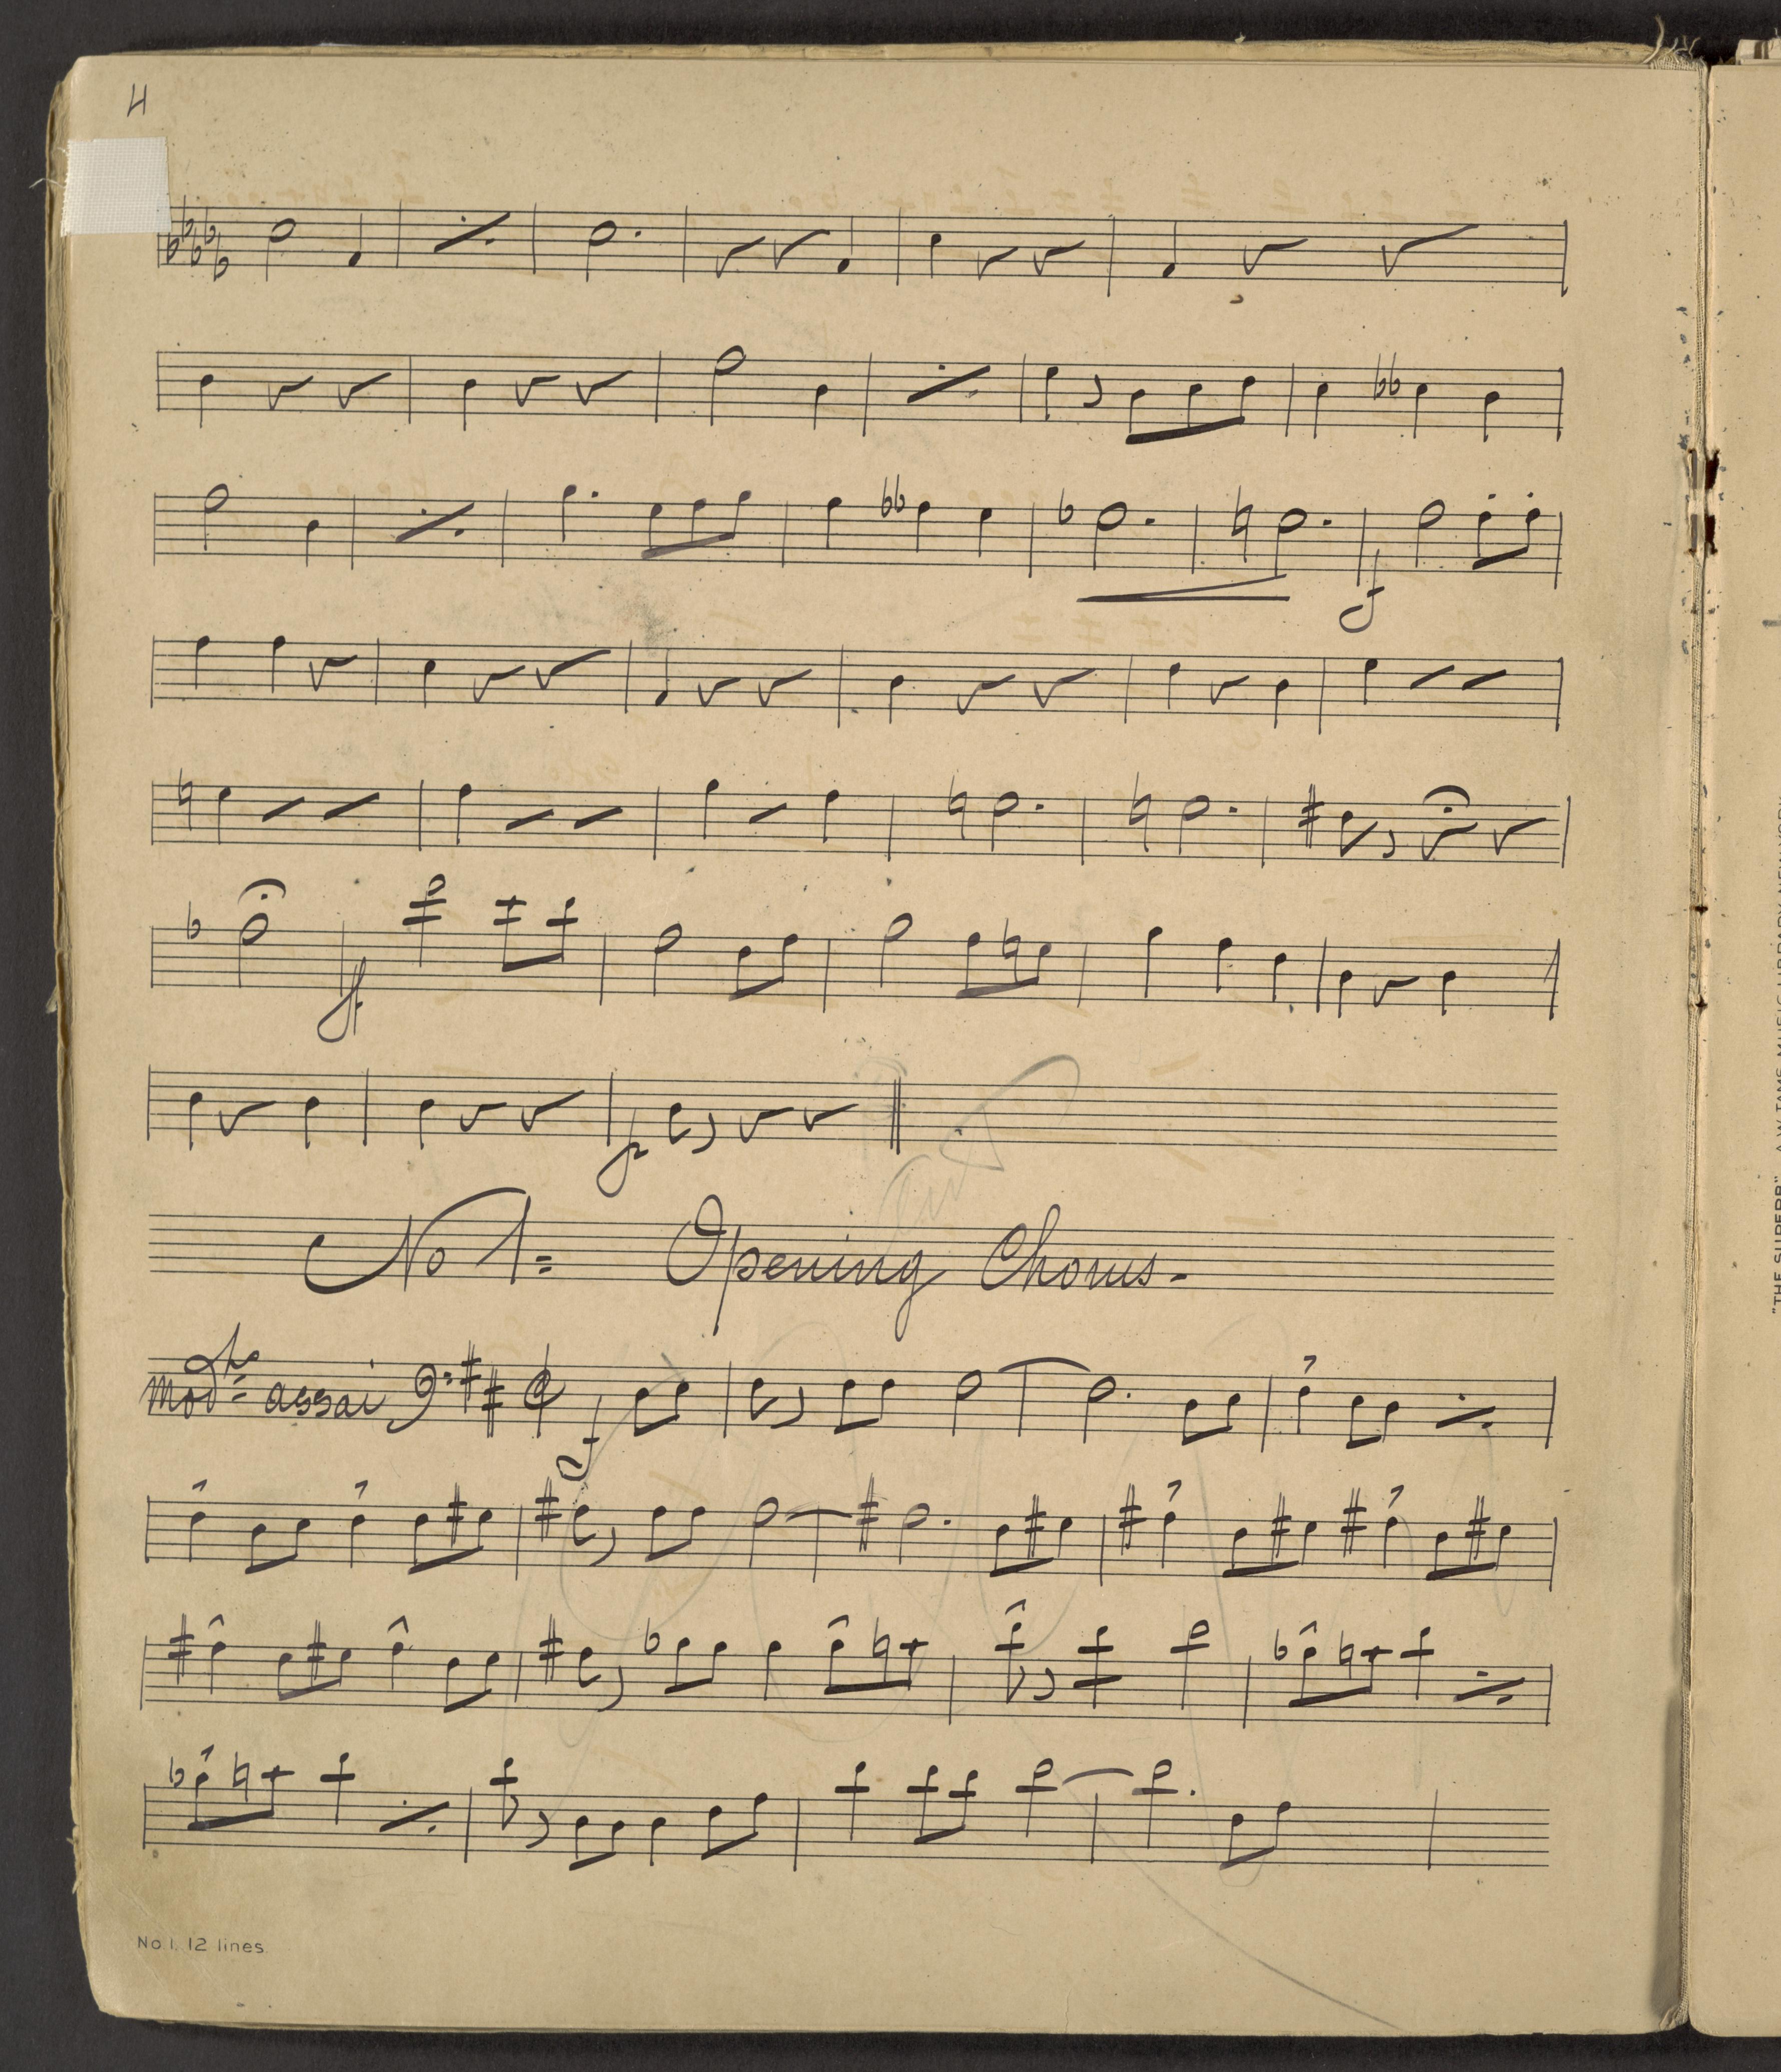 4
f
ff
p
No 1= Opening Chorus-
Modto assai
f
No 1. 12 lines
"THE SUPERB" A.W. TAMS MUSIC LIBRARY